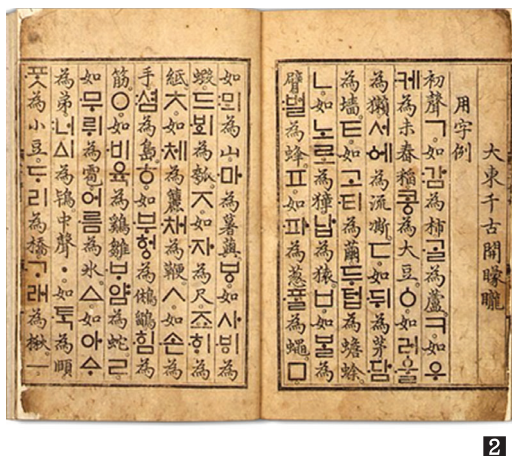 大東千古開矇矓
用字例
初聲ㄱ。如감為柿。ᄀᆞᆯ為蘆。ㅋ。如우
케為未舂稻。콩為大豆。ㆁ。如러ᅌᅮᆯ
為獺。서ᅌᅦ為流凘。ㄷ。如뒤為茅。담
為墻。ㅌ。如고티為繭。두텁為蟾蜍。
ㄴ。如노로為獐。납為猿。ㅂ。如ᄇᆞᆯ為
臂。벌為蜂。ㅍ。如파為葱。ᄑᆞᆯ為蠅。ㅁ。
如뫼為山。마為薯藇。ㅸ。如사ᄫᅵ為
蝦。드ᄫᅴ為瓠。ㅈ。如자為尺。죠ᄒᆡ為
紙。ㅊ。如체為簏。채為鞭。ㅅ。如손為
手。셤為島。ㅎ。如부헝為鵂鶹。힘為
筋。ㅇ。如비육為鷄雛。ᄇᆞ얌為蛇。ㄹ。
如무뤼為雹。어름為氷。ㅿ。如아ᅀᆞ
為弟。너ᅀᅵ為鴇。中聲ㆍ。如ᄐᆞᆨ為頤。
ᄑᆞᆺ為小豆。ᄃᆞ리為橋。ᄀᆞ래為楸。ㅡ。
2